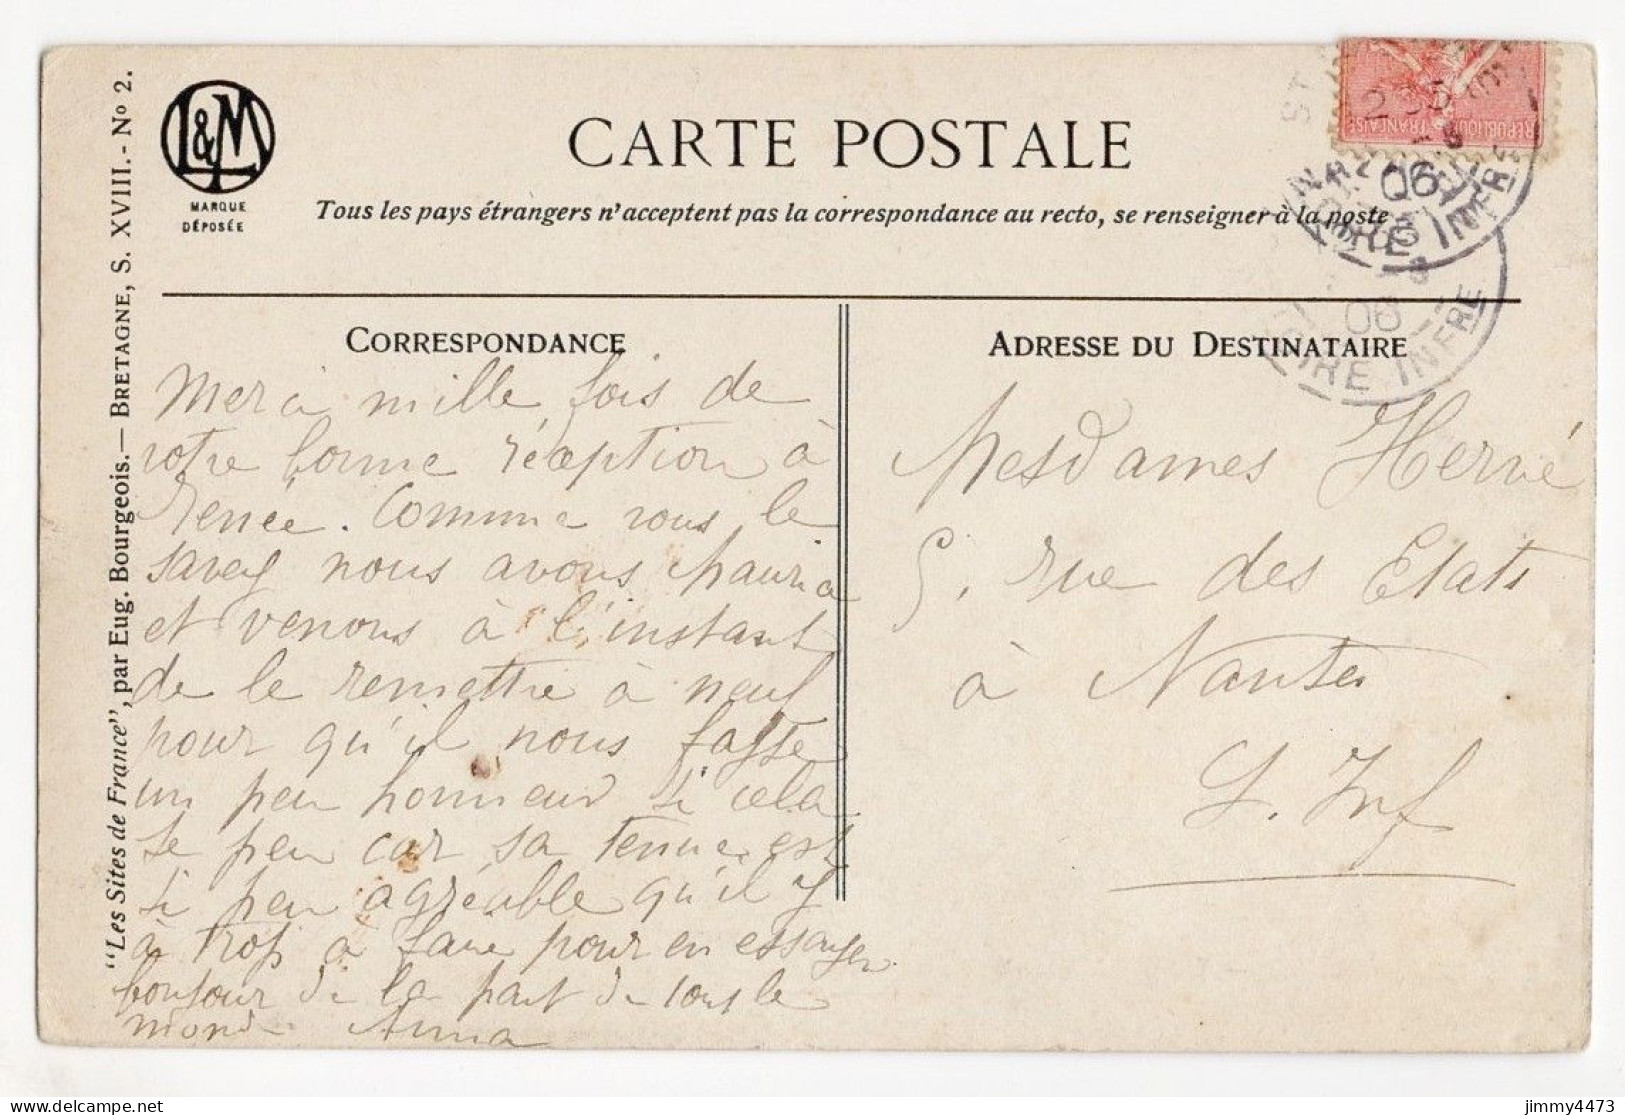 L&M
MARQUE
DÉPOSÉE
CARTE POSTALE
Tous les pays étrangers n'acceptent pas la correspondance au recto, se renseigner à la poste
"Les Sites de France", par Eug. Bourgeois. — BRETAGNE, S. XVIII. - Nº 2.
RÉPUBLIQUE FRANÇAISE
06
LOIRE INFRE
06
LOIRE INFRE
CORRESPONDANCE
Merci mille fois de
votre bonne réception à
Renée. Comme vous le
savez nous avons Maurice
et venons à l'instant
de le remettre à neuf
pour qu'il nous fasse
un peu honneur si cela
se peu car sa tenue est
si peu agréable qu'il y
à trop à faire pour en essayer
bonjour de la part de tous le
monde Anna
ADRESSE DU DESTINATAIRE
Mesdames Hervé
5, rue des Etats
à Nantes
L. Inf
jimmy4473